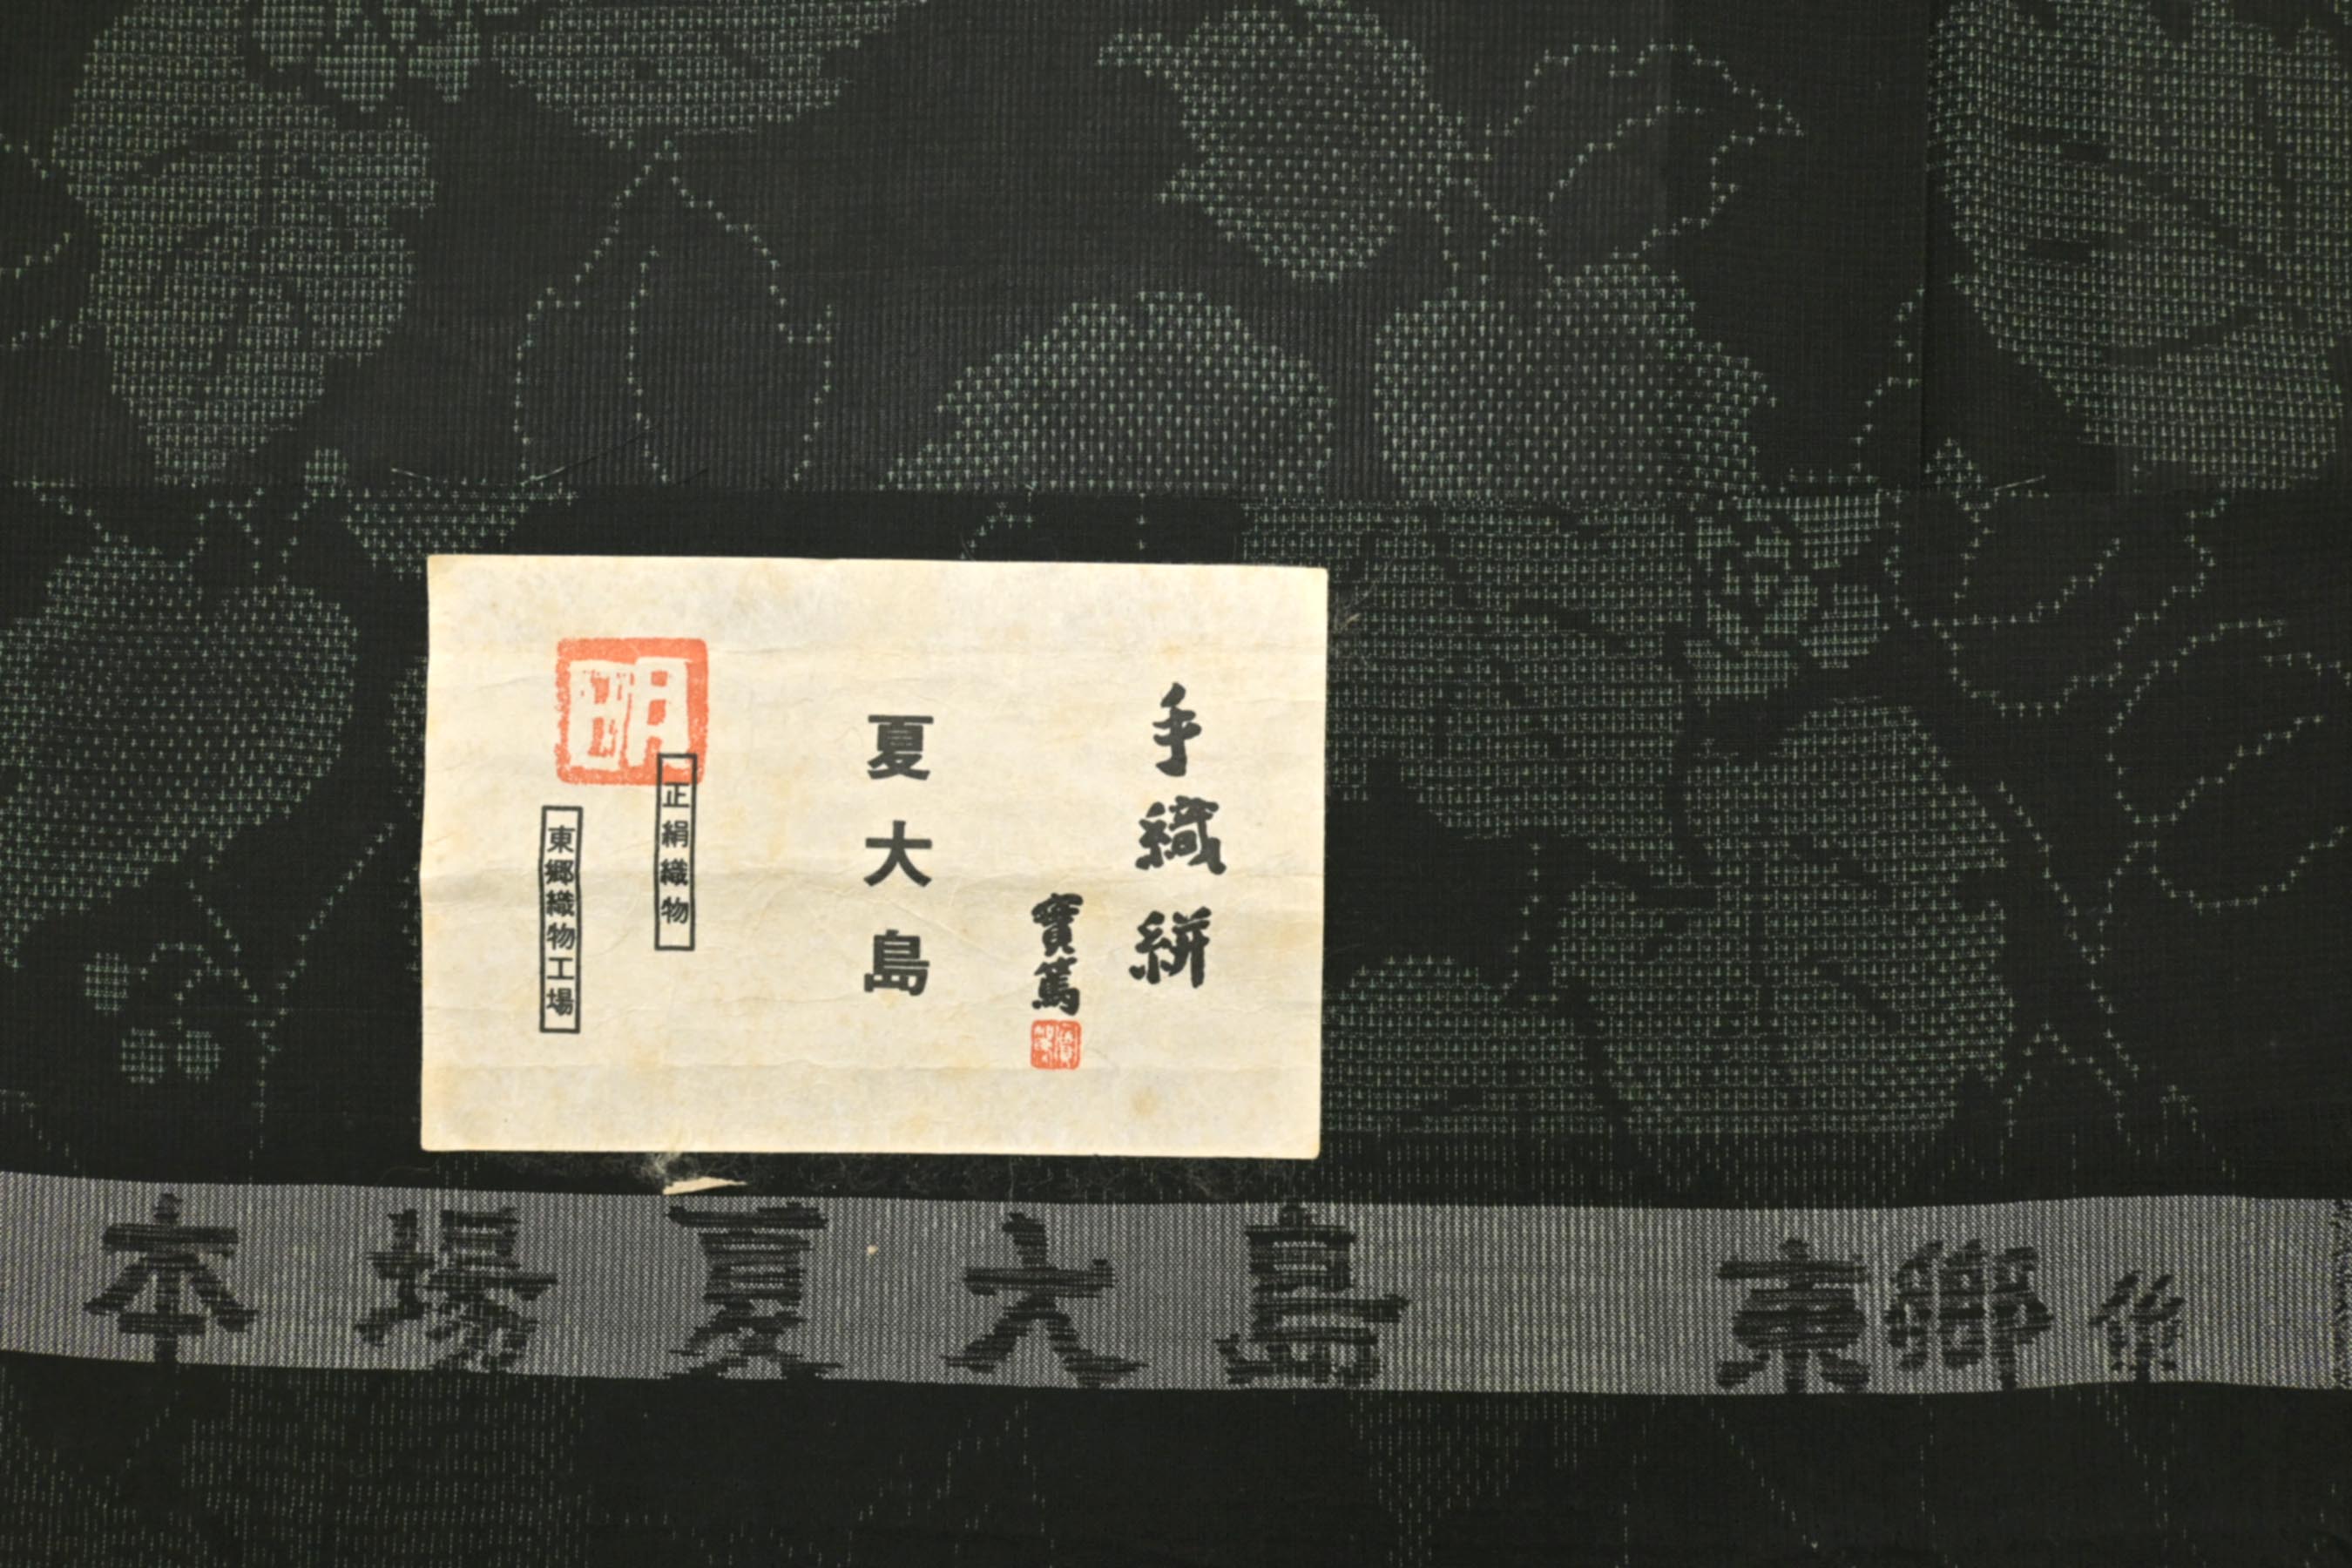 手織絣
實篤
夏大島
明
正絹織物
東郷織物工場
本場夏大島 東郷作